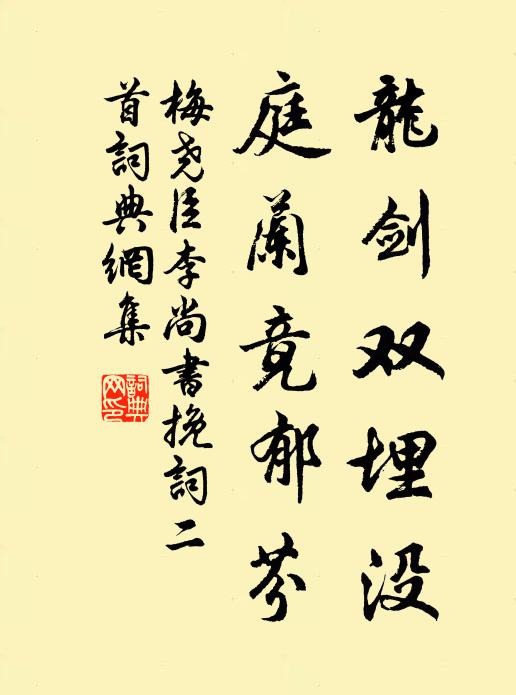 龍剑双埋没
庭蘭竟郁芬
梅尧臣李尚書挽詞二
首詞典網集
詞典
网印